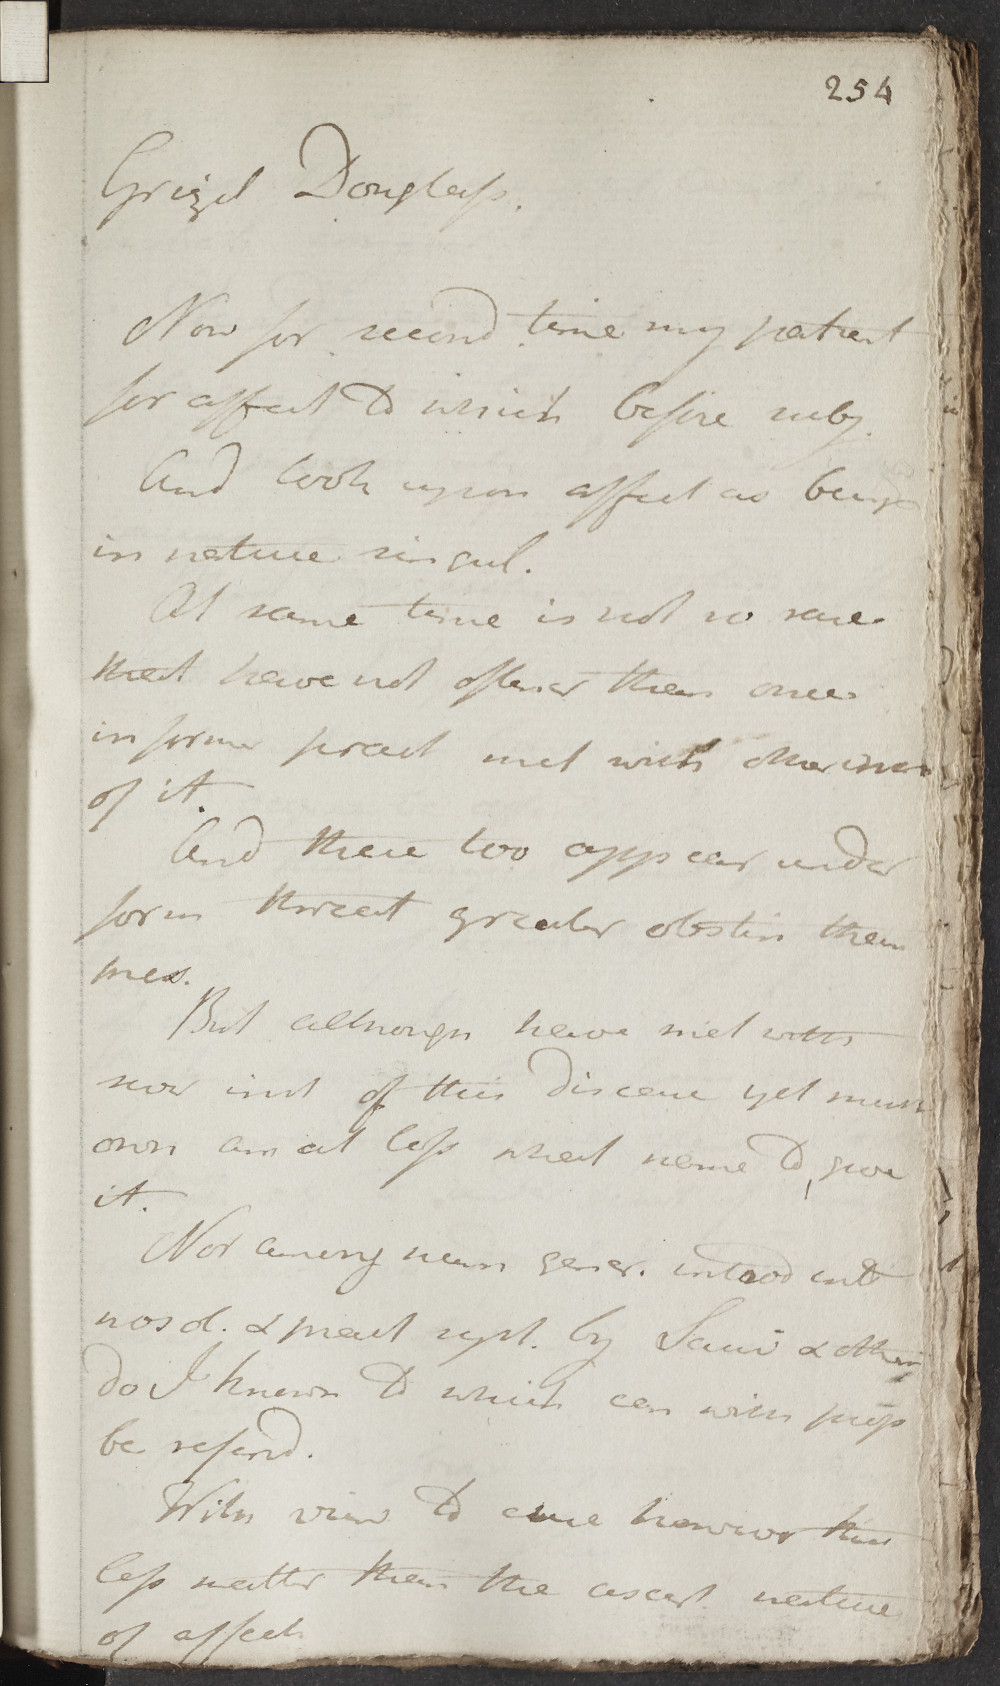 254
Grizel Douglass.
Now for second time my patient
for affect to which before subj.
And look upon affect as being
in nature singul.
At same time is not so rare
that have not oftener than once
in former pract met with other inst
of it.
And these too appear under
form threat greater obstin than
pres.
But although have met with
sever inst of this disease yet must
own am at loss what name to give
it.
Nor among num gener. introd into
nosol. & pract syst. by Sauv & others
do I know to which can with prop
be referrd.
With view to cure however this
less matter than the ascert nature
of affect